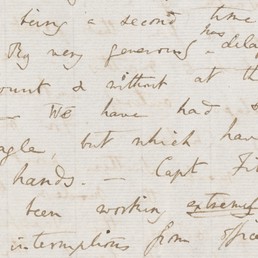 being a second time
has
By very generous dela
ount & without at th
— We have had
agle, but which hav
hands. — Capt Fit
been working extremel
interruptions from offic